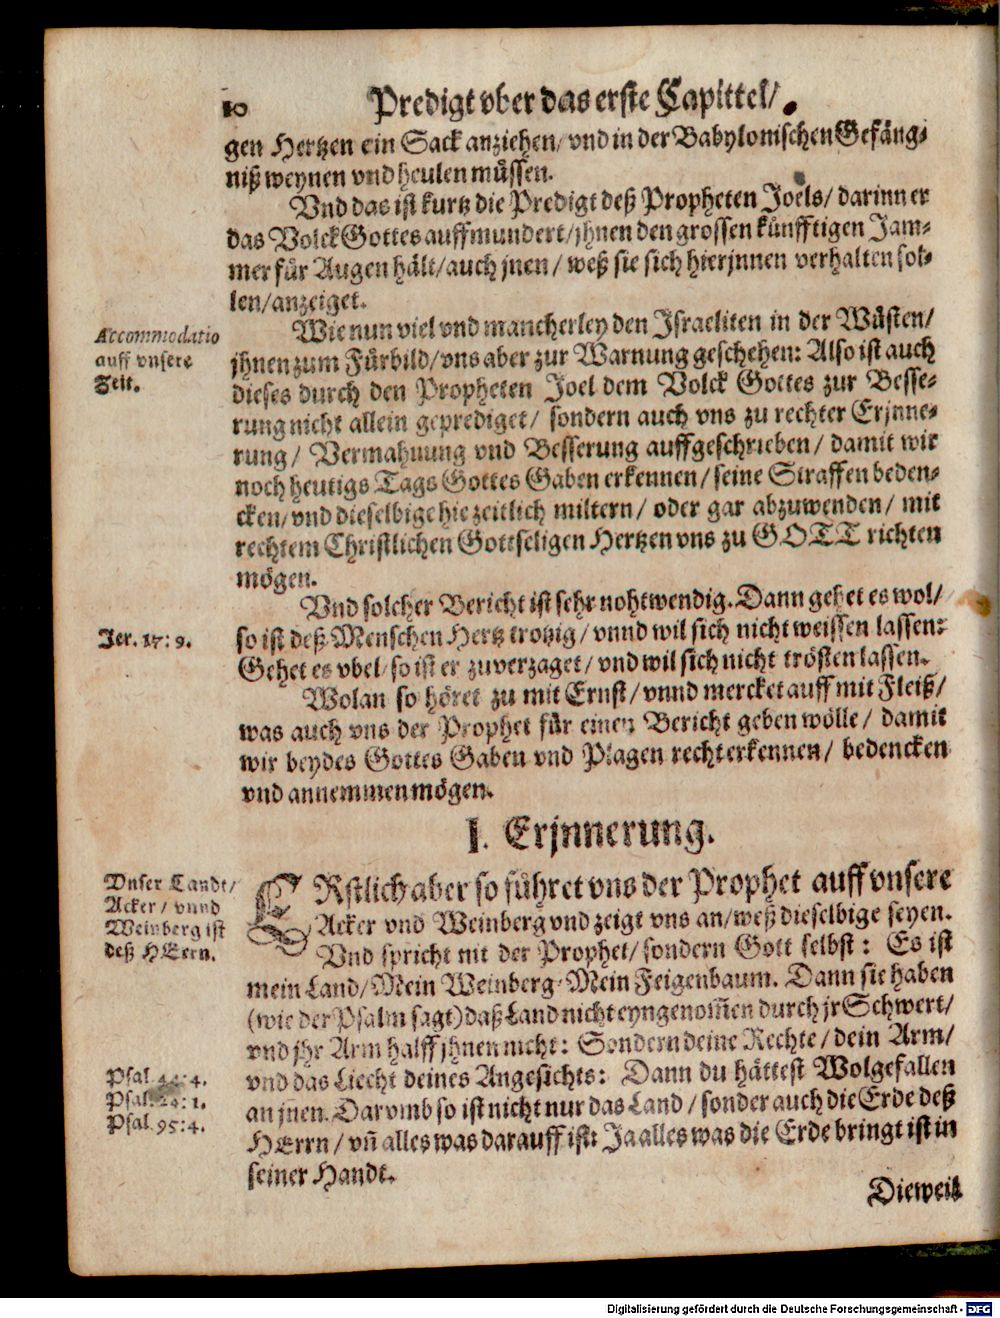 10 Predigt vber das erste Capittel/
gen Hertzen ein Sack anziehen/ vnd in der Babylonischen Gefäng-
niß weynen vnd heulen müssen.
Vnd das ist kurtz die Predigt deß Propheten Joels/ darinn er
das Volck Gottes auffmundert/ jhnen den grossen künfftigen Jam-
mer für Augen hält/ auch jnen/ weß sie sich hierjnnen verhalten sol-
len/ anzeiget.
Accommodatio
auff vnsere
Zeit.
Wie nun viel vnd mancherley den Israeliten in der Wüsten/
jhnen zum Fürbild/ vns aber zur Warnung geschehen: Also ist auch
dieses durch den Propheten Joel dem Volck Gottes zur Besse-
rung nicht allein geprediget/ sondern auch vns zu rechter Erjnne-
rung/ Vermahnung vnd Besserung auffgeschrieben/ damit wir
noch heutigs Tags Gottes Gaben erkennen/ seine Straffen beden-
cken/ vnd dieselbige hie zeitlich miltern/ oder gar abzuwenden/ mit
rechtem Christlichen Gottseligen Hertzen vns zu GOTT richten
mögen.
Vnd solcher Bericht ist sehr nohtwendig. Dann gehet es wol/
Jer. 17: 9.
so ist deß Menschen Hertz trotzig/ vnnd wil sich nicht weissen lassen:
Gehet es vbel/ so ist er zuverzaget/ vnd wil sich nicht trösten lassen.
Wolan so höret zu mit Ernst/ vnnd mercket auff mit Fleiß/
was auch vns der Prophet für einen Bericht geben wölle/ damit
wir beydes Gottes Gaben vnd Plagen recht erkennen/ bedencken
vnd annemmen mögen.
I. Erjnnerung.
Vnser Landt/
Acker/ vnnd
Weinberg ist
deß HErrn.
ERstlich aber so führet vns der Prophet auff vnsere
Acker vnd Weinberg vnd zeigt vns an/ weß dieselbige seyen.
Vnd spricht nit der Prophet/ sondern Gott selbst: Es ist
mein Land/ Mein Weinberg/ Mein Feigenbaum. Dann sie haben
(wie der Psalm sagt) daß Land nicht eyngenom̃en durch jr Schwert/
vnd jhr Arm halff jhnen nicht: Sondern deine Rechte/ dein Arm/
Psal. 44:4.
Psal. 24: 1.
Psal. 95:4.
vnd das Liecht deines Angesichts: Dann du hättest Wolgefallen
an jnen. Darvmb so ist nicht nur das Land/ sonder auch die Erde deß
HErrn/ vñ alles was darauff ist: Ja alles was die Erde bringt ist in
seiner Handt.
Dieweil
Digitalisierung gefördert durch die Deutsche Forschungsgemeinschaft - DFG